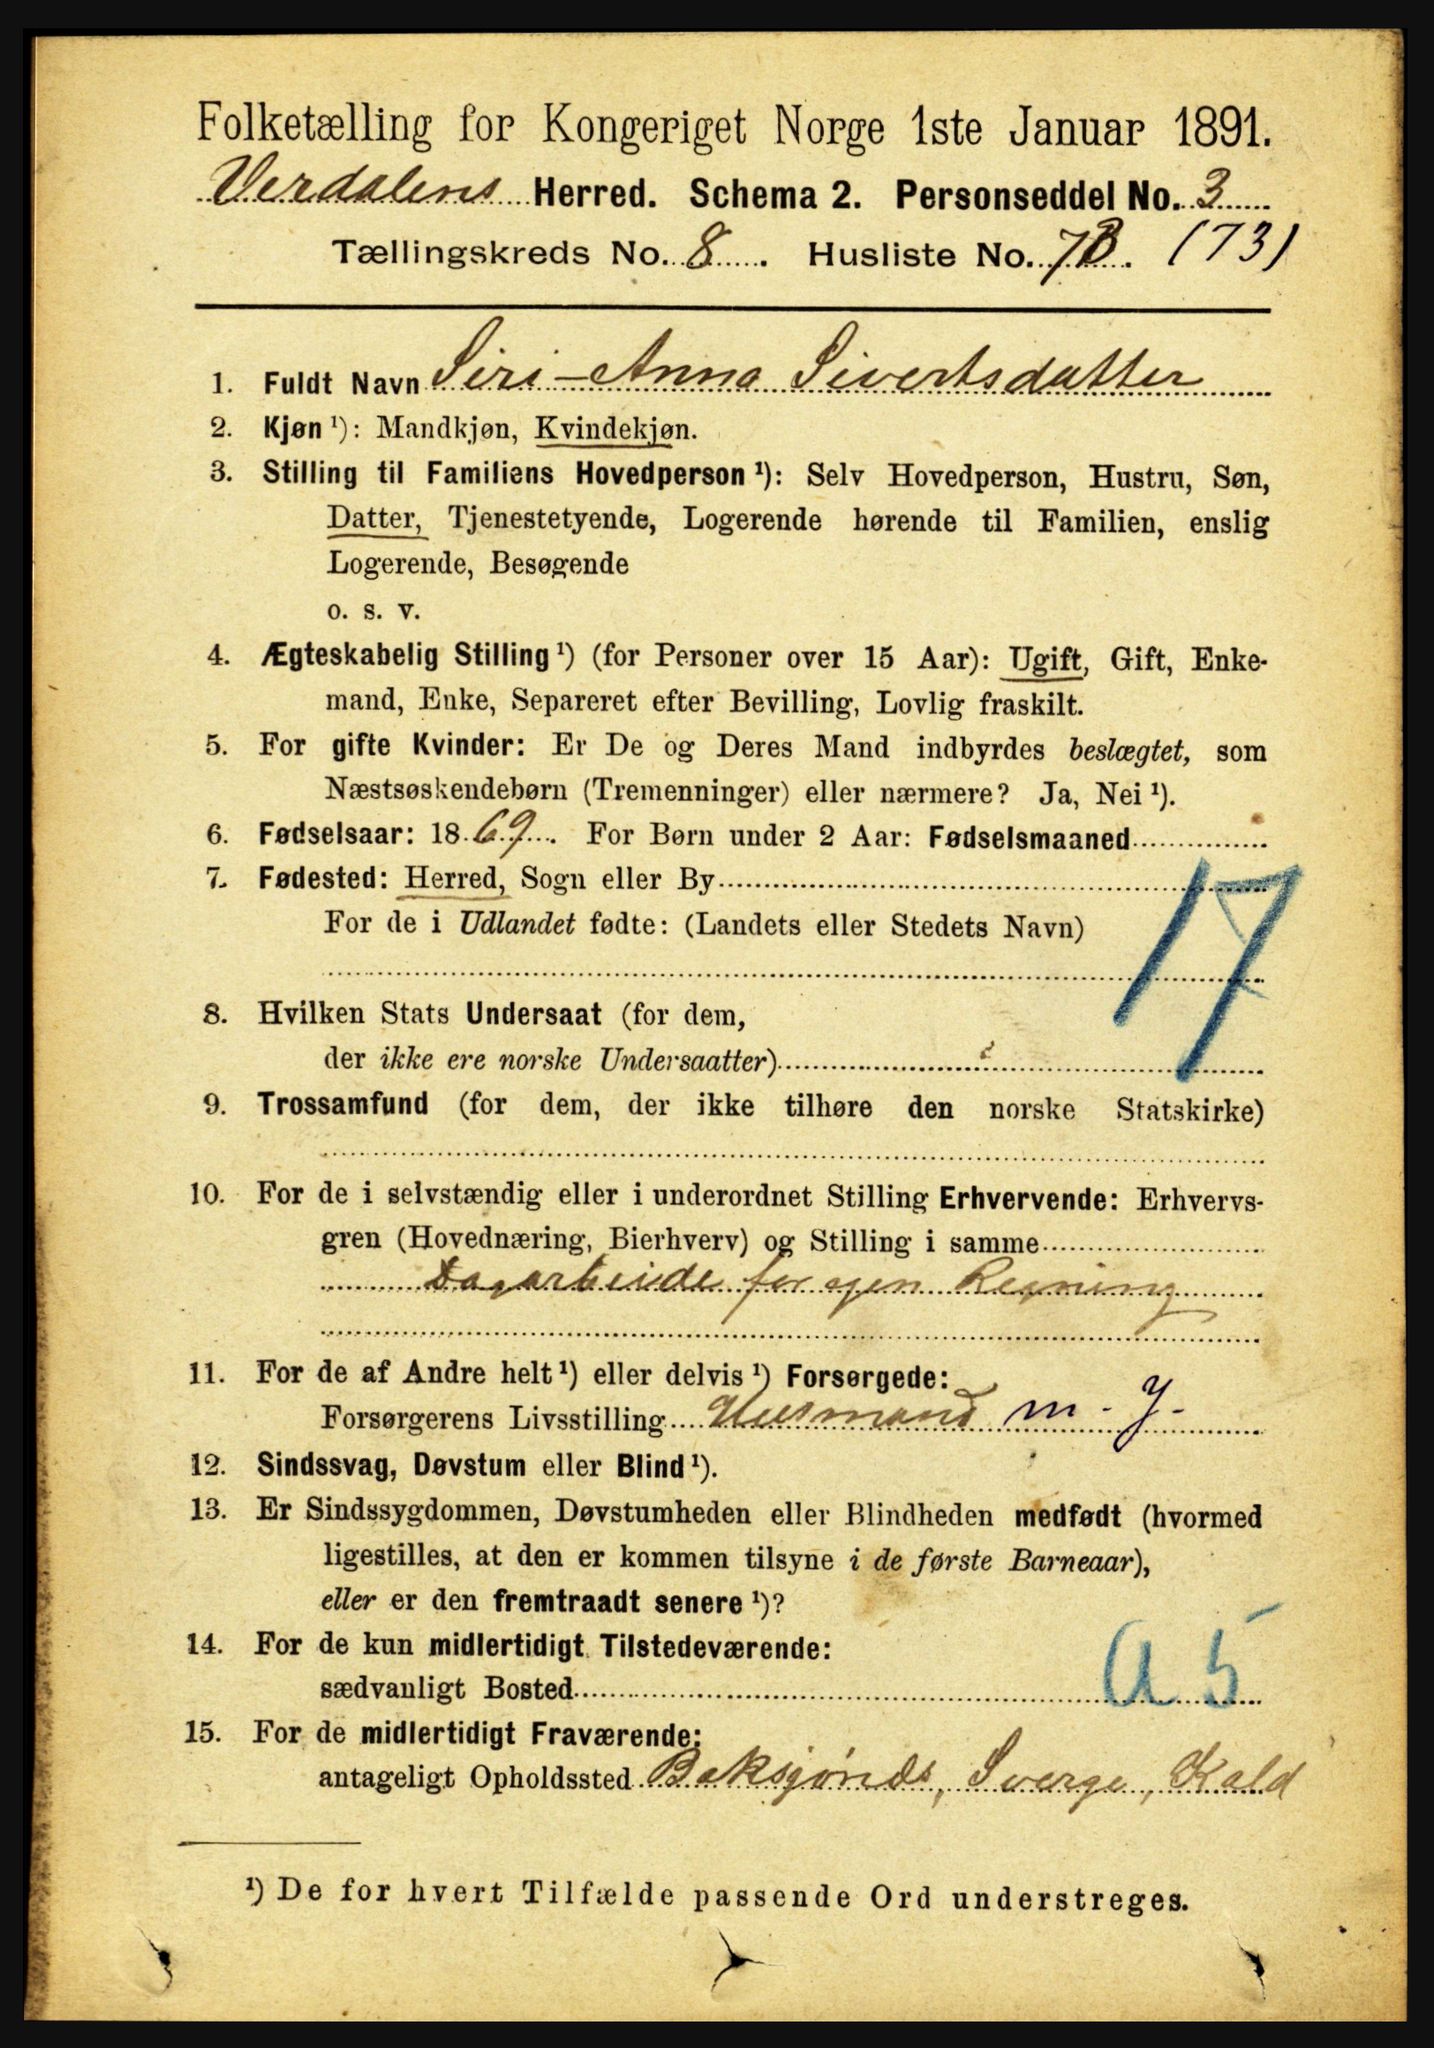 Folketælling for Kongeriget Norge 1ste Januar 1891.
Verdalens Herred. Schema 2. Personseddel No. 3
Tællingskreds No. 8. Husliste No. 73. (73)
1. Fuldt Navn Siri-Anna Sivertsdatter
2. Kjøn ¹): Mandkjøn, Kvindekjøn.
3. Stilling til Familiens Hovedperson ¹): Selv Hovedperson, Hustru, Søn,
Datter, Tjenestetyende, Logerende hørende til Familien, enslig
Logerende, Besøgende
o. s. v.
4. Ægteskabelig Stilling ¹) (for Personer over 15 Aar): Ugift, Gift, Enke-
mand, Enke, Separeret efter Bevilling, Lovlig fraskilt.
5. For gifte Kvinder: Er De og Deres Mand indbyrdes beslægtet, som
Næstsøskendebørn (Tremenninger) eller nærmere? Ja, Nei ¹).
6. Fødselsaar: 1869. For Børn under 2 Aar: Fødselsmaaned
7. Fødested: Herred, Sogn eller By
17
For de i Udlandet fødte: (Landets eller Stedets Navn)
8. Hvilken Stats Undersaat (for dem,
der ikke ere norske Undersaatter)
9. Trossamfund (for dem, der ikke tilhøre den norske Statskirke)
10. For de i selvstændig eller i underordnet Stilling Erhvervende: Erhvervs-
gren (Hovednæring, Bierhverv) og Stilling i samme
Dagarbeide for egen Regning
11. For de af Andre helt ¹) eller delvis ¹) Forsørgede:
Forsørgerens Livsstilling Husmand m. J.
12. Sindssvag, Døvstum eller Blind ¹).
13. Er Sindssygdommen, Døvstumheden eller Blindheden medfødt (hvormed
ligestilles, at den er kommen tilsyne i de første Barneaar),
eller er den fremtraadt senere ¹)?
14. For de kun midlertidigt Tilstedeværende:
sædvanligt Bosted
a 5
15. For de midlertidigt Fraværende:
antageligt Opholdssted Sverge, Kald
¹) De for hvert Tilfælde passende Ord understreges.